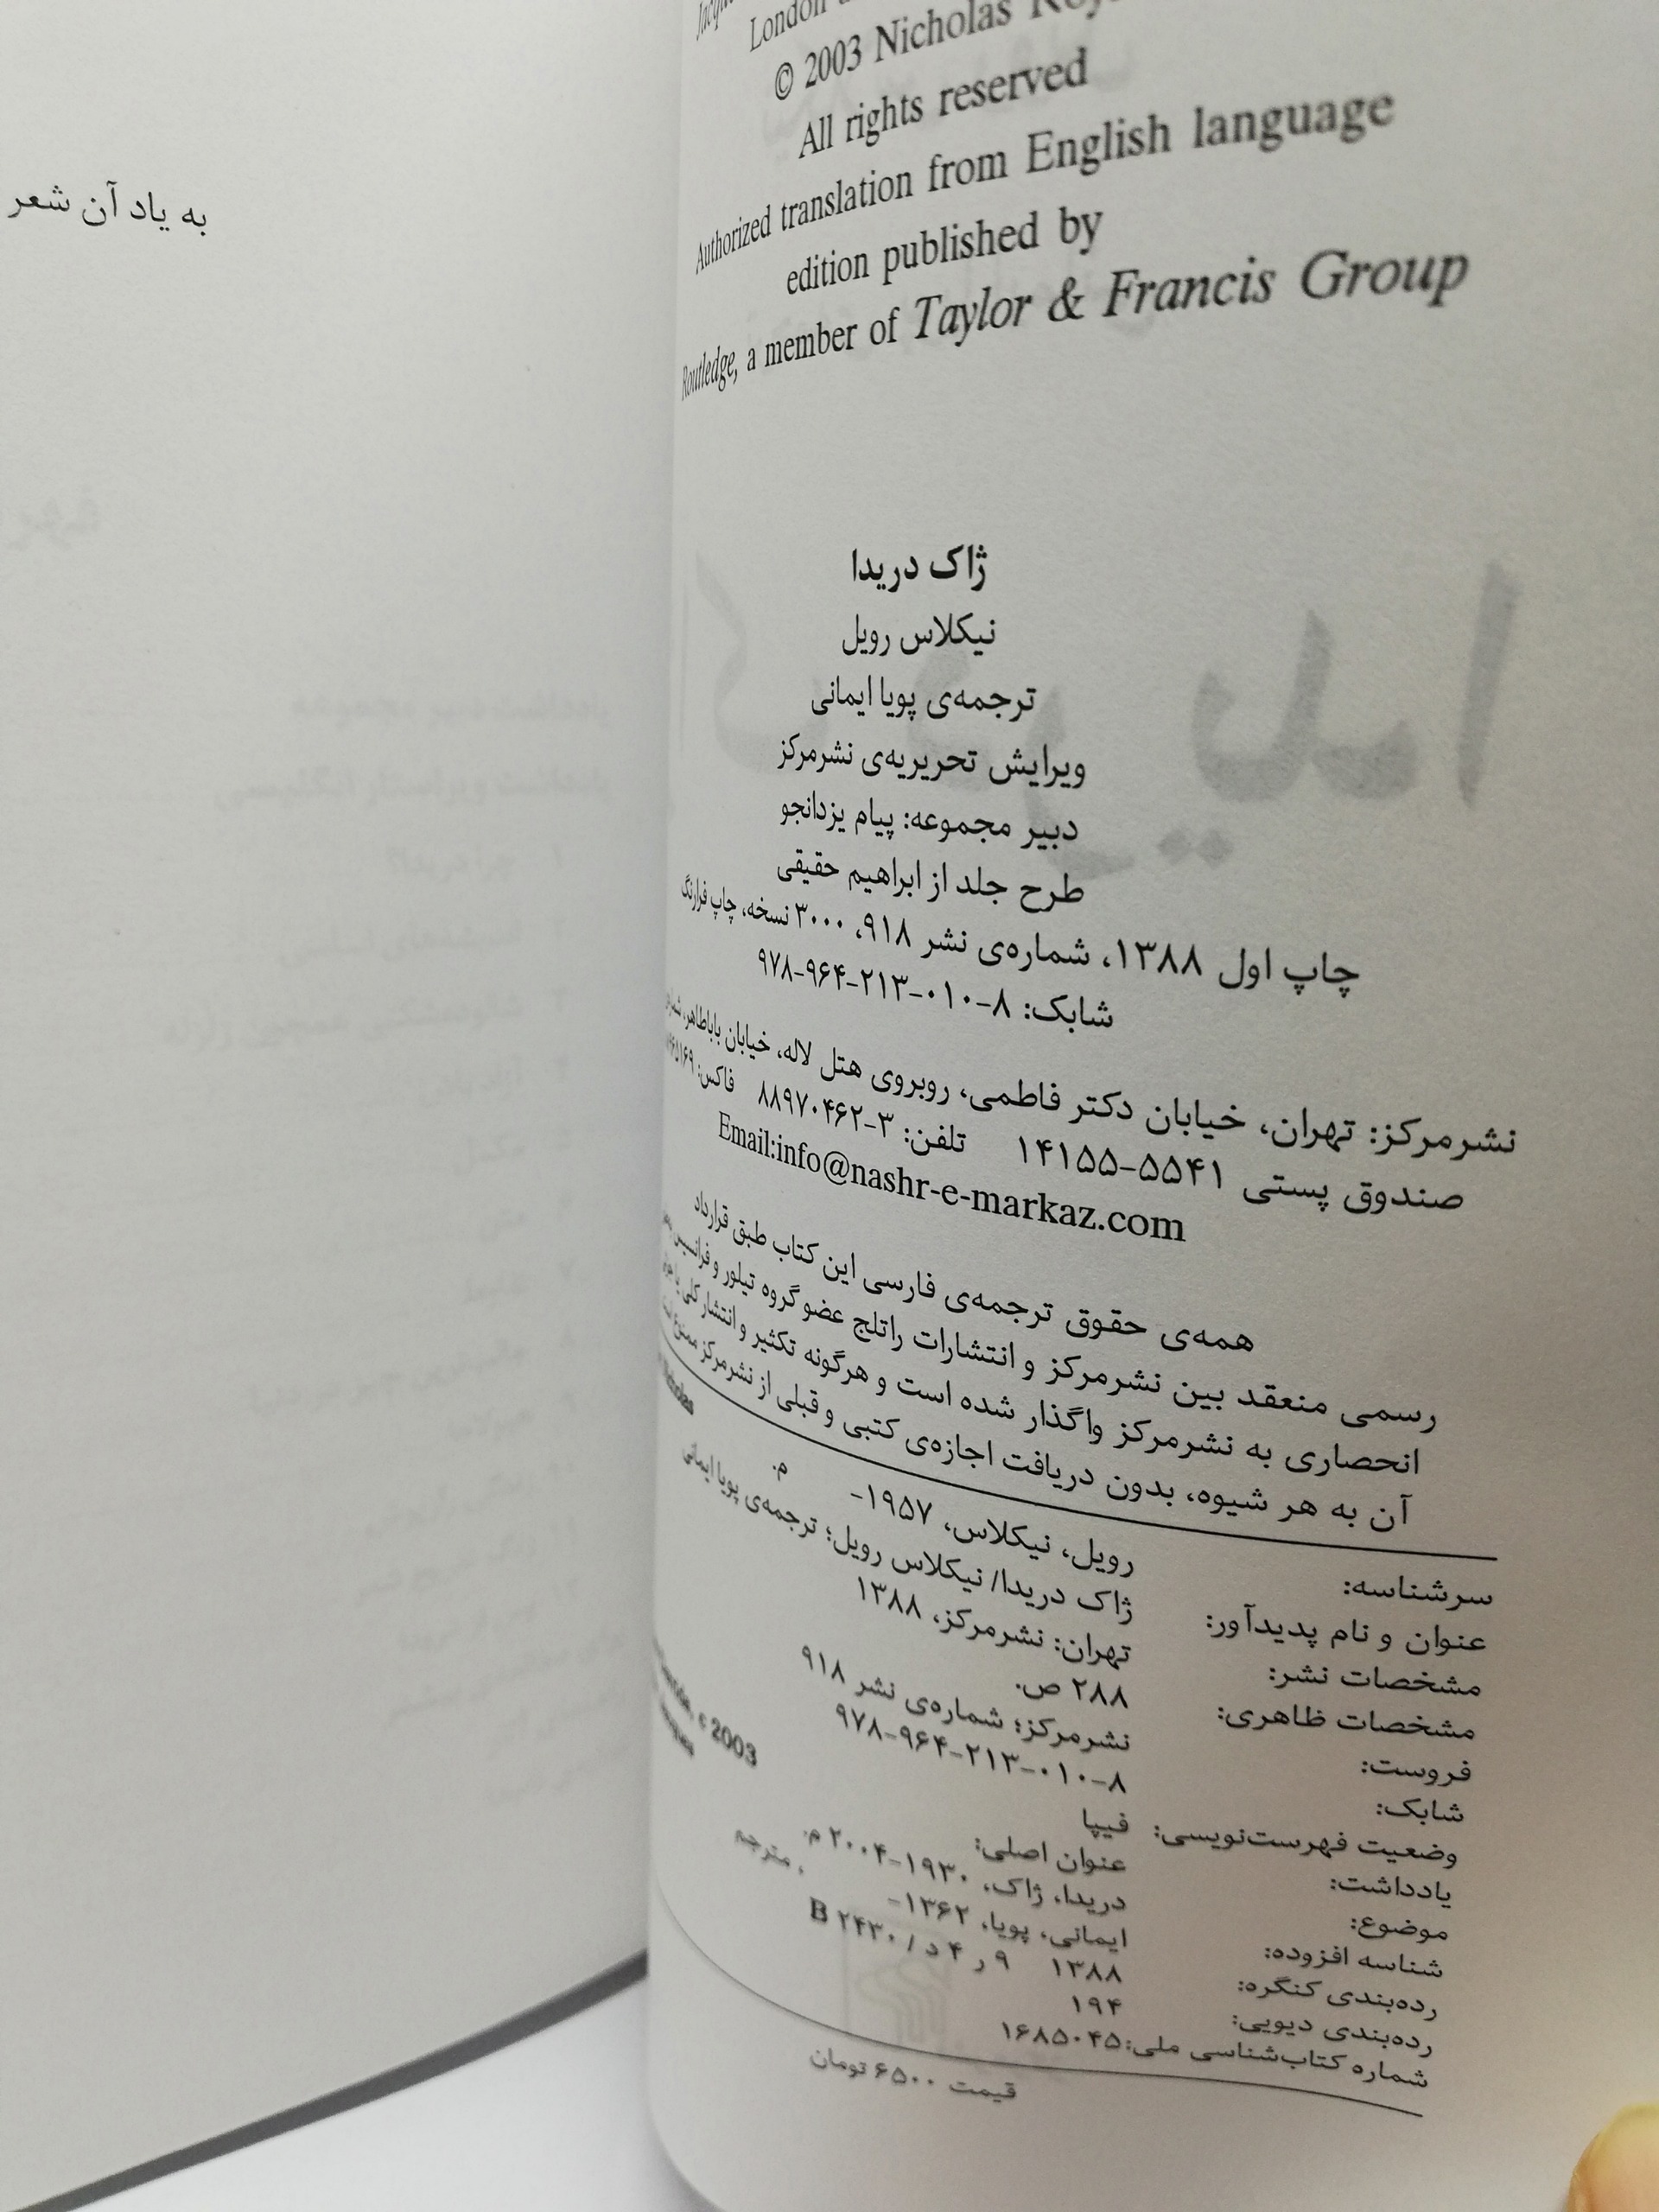 London
© 2003 Nicholas
All rights reserved
Authorized translation from English language
edition published by
Routledge, a member of Taylor & Francis Group
ژاک دریدا
نیکلاس رویل
ترجمه‌ی پویا ایمانی
ویرایش تحریریه‌ی نشرمرکز
دبیر مجموعه: پیام یزدانجو
طرح جلد از ابراهیم حقیقی
چاپ اول ۱۳۸۸، شماره‌ی نشر ۹۱۸، ۳۰۰۰ نسخه، چاپ فرارنگ
شابک: ۸-۰۱۰-۲۱۳-۹۶۴-۹۷۸
نشرمرکز: تهران، خیابان دکتر فاطمی، روبروی هتل لاله، خیابان باباطاهر،
صندوق پستی ۵۵۴۱-۱۴۱۵۵ تلفن: ۳-۸۸۹۷۰۴۶۲ فاکس:
Email:info@nashr-e-markaz.com
همه‌ی حقوق ترجمه‌ی فارسی این کتاب طبق قرارداد
رسمی منعقد بین نشرمرکز و انتشارات راتلج عضو گروه تیلور و فرانسیس
انحصاری به نشرمرکز واگذار شده است و هرگونه تکثیر و انتشار کلی یا
آن به هر شیوه، بدون دریافت اجازه‌ی کتبی و قبلی از نشرمرکز ممنوع است
سرشناسه: رویل، نیکلاس، ۱۹۵۷- م.
عنوان و نام پدیدآور: ژاک دریدا/ نیکلاس رویل؛ ترجمه‌ی پویا ایمانی
مشخصات نشر: تهران: نشرمرکز، ۱۳۸۸
مشخصات ظاهری: ۲۸۸ ص.
فروست: نشرمرکز؛ شماره‌ی نشر ۹۱۸
شابک: ۸-۰۱۰-۲۱۳-۹۶۴-۹۷۸
وضعیت فهرست‌نویسی: فیپا
یادداشت: عنوان اصلی: c 2003
موضوع: دریدا، ژاک، ۱۹۳۰-۲۰۰۴ م.
شناسه افزوده: ایمانی، پویا، ۱۳۶۲- ، مترجم
رده‌بندی کنگره: ۱۳۸۸ ۹ ر ۴ د / B ۲۴۳۰
رده‌بندی دیویی: ۱۹۴
شماره کتاب‌شناسی ملی: ۱۶۸۵۰۴۵
قیمت ۶۵۰۰ تومان
به یاد آن شعر